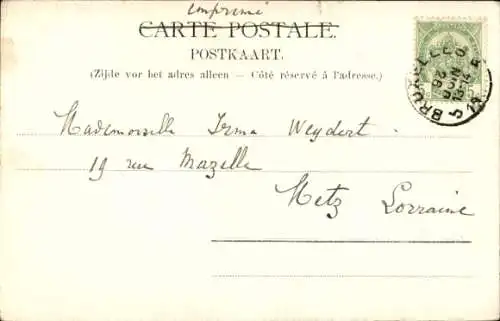 imprimé
CARTE POSTALE.
POSTKAART.
(Zijde vor het adres alleen — Côté réservé à l'adresse.)
Mademoiselle Irma Weydert
19 rue Mazelle
Metz Lorraine
BRUXELLES 5
26 JUIN
13-14